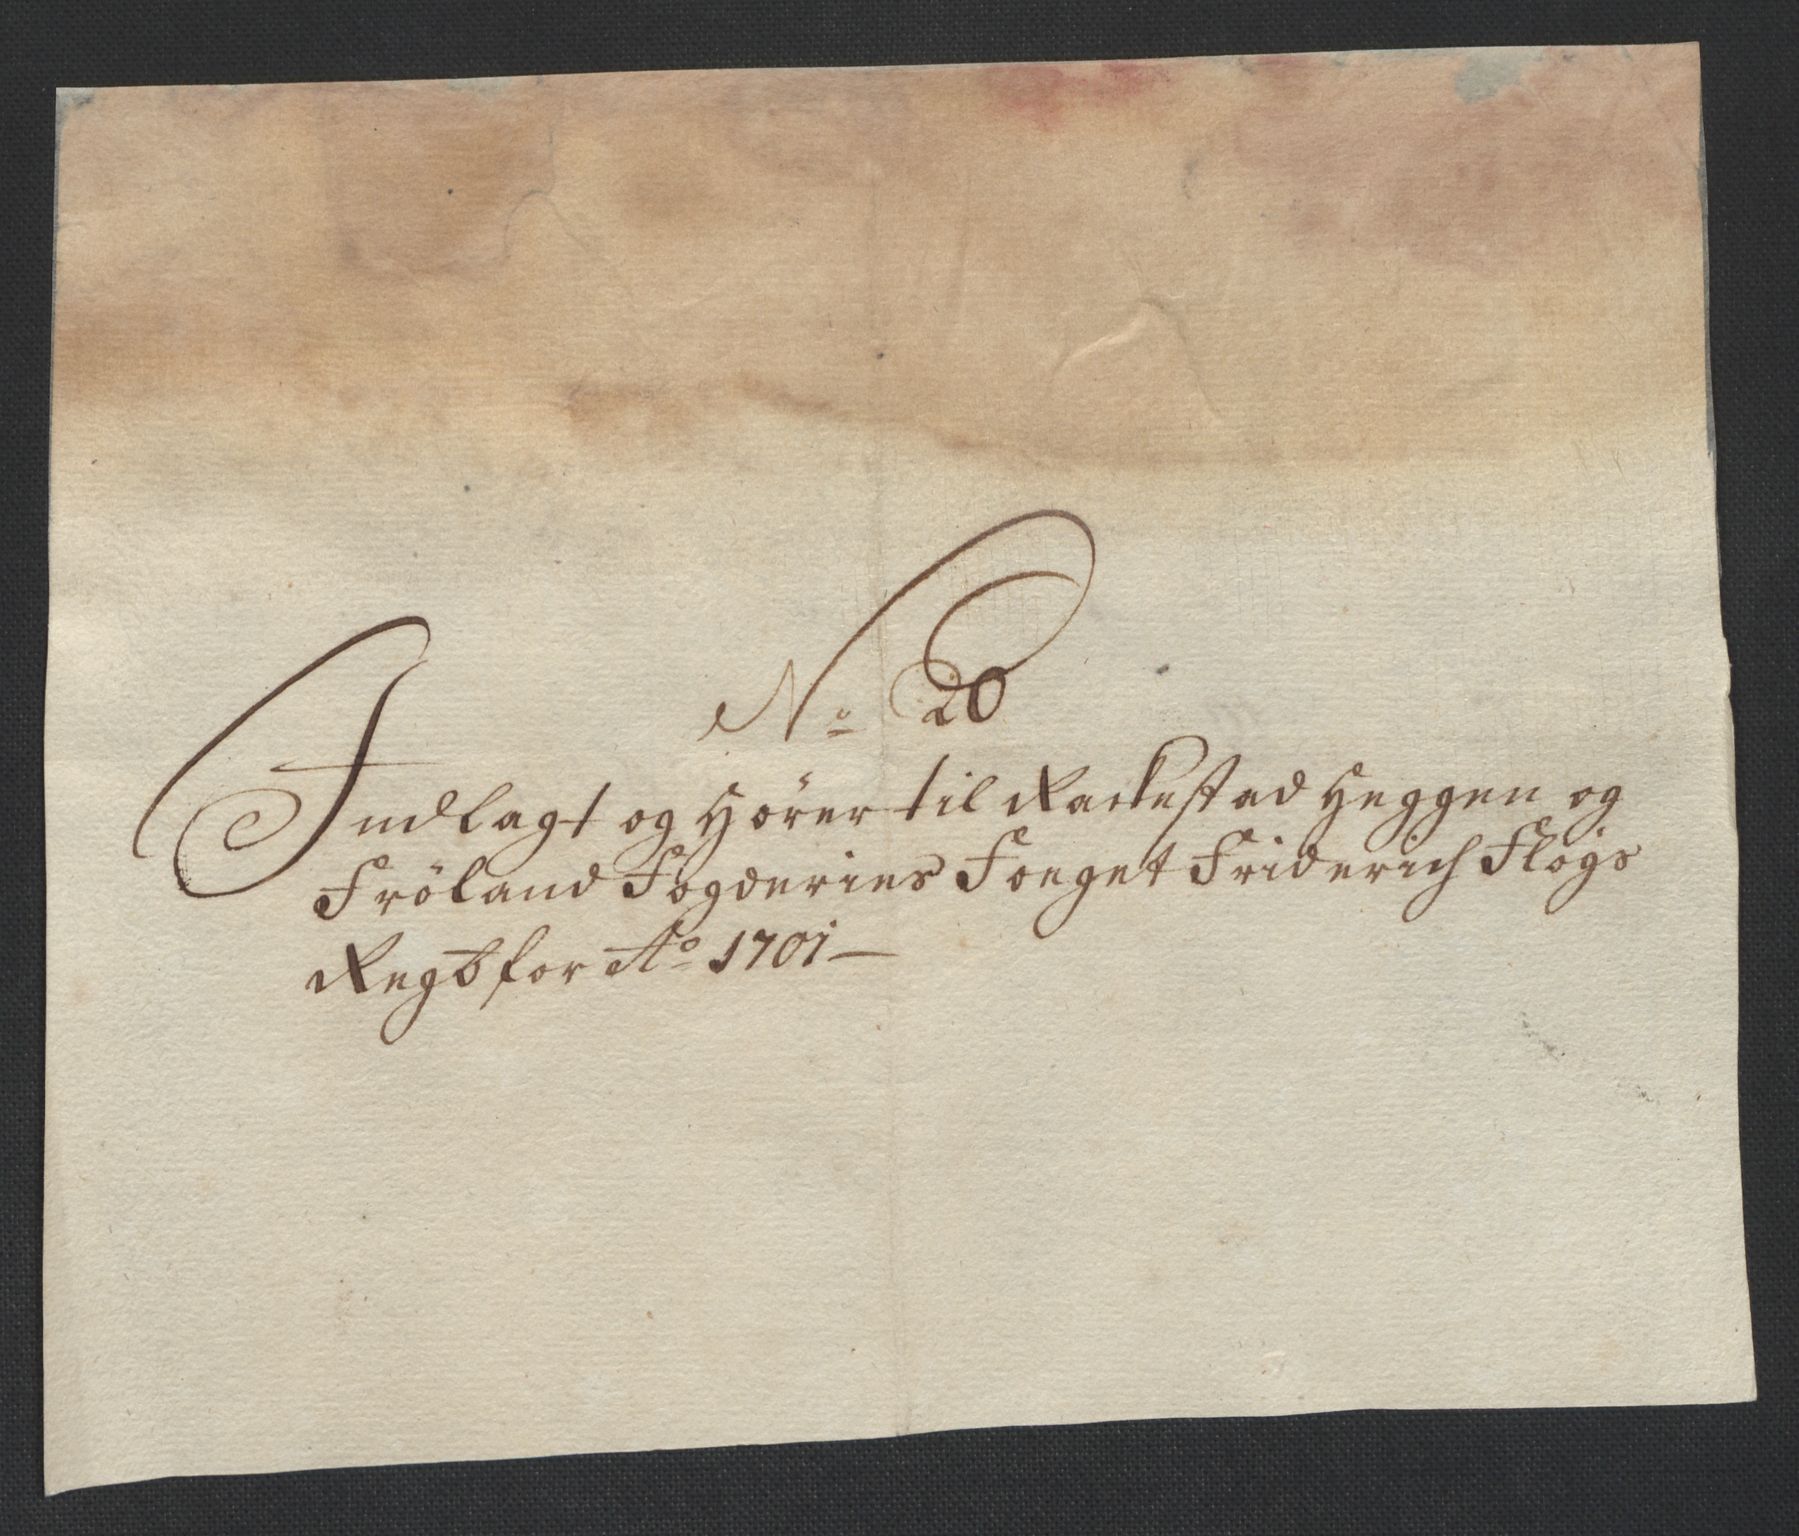 No 20
Indlagt og Hörer til Rackestad Heggen og
Fröland Fogderies Foeget Friderich Flögs
Regb for Ao 1701 —